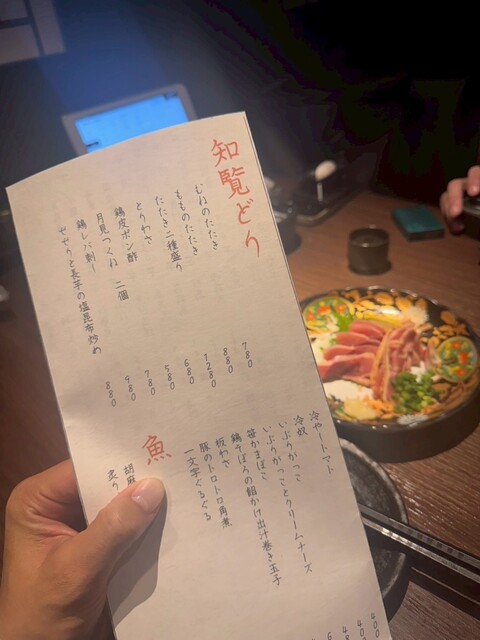 知覧どり
むねのたたき 780
もものたたき 880
たたき二種盛り 1280
とりわさ 680
鶏皮ポン酢 580
月見つくね 二個 780
鶏レバ刺し 980
せせりと長芋の塩昆布炒め 880
冷やしトマト
冷奴
いぶりがっこ
いぶりがっことクリームチーズ
笹かまぼこ
鶏そぼろの餡かけ出汁巻き玉子
板わさ
豚のトロトロ角煮
一文字ぐるぐる
魚
胡麻
炙り